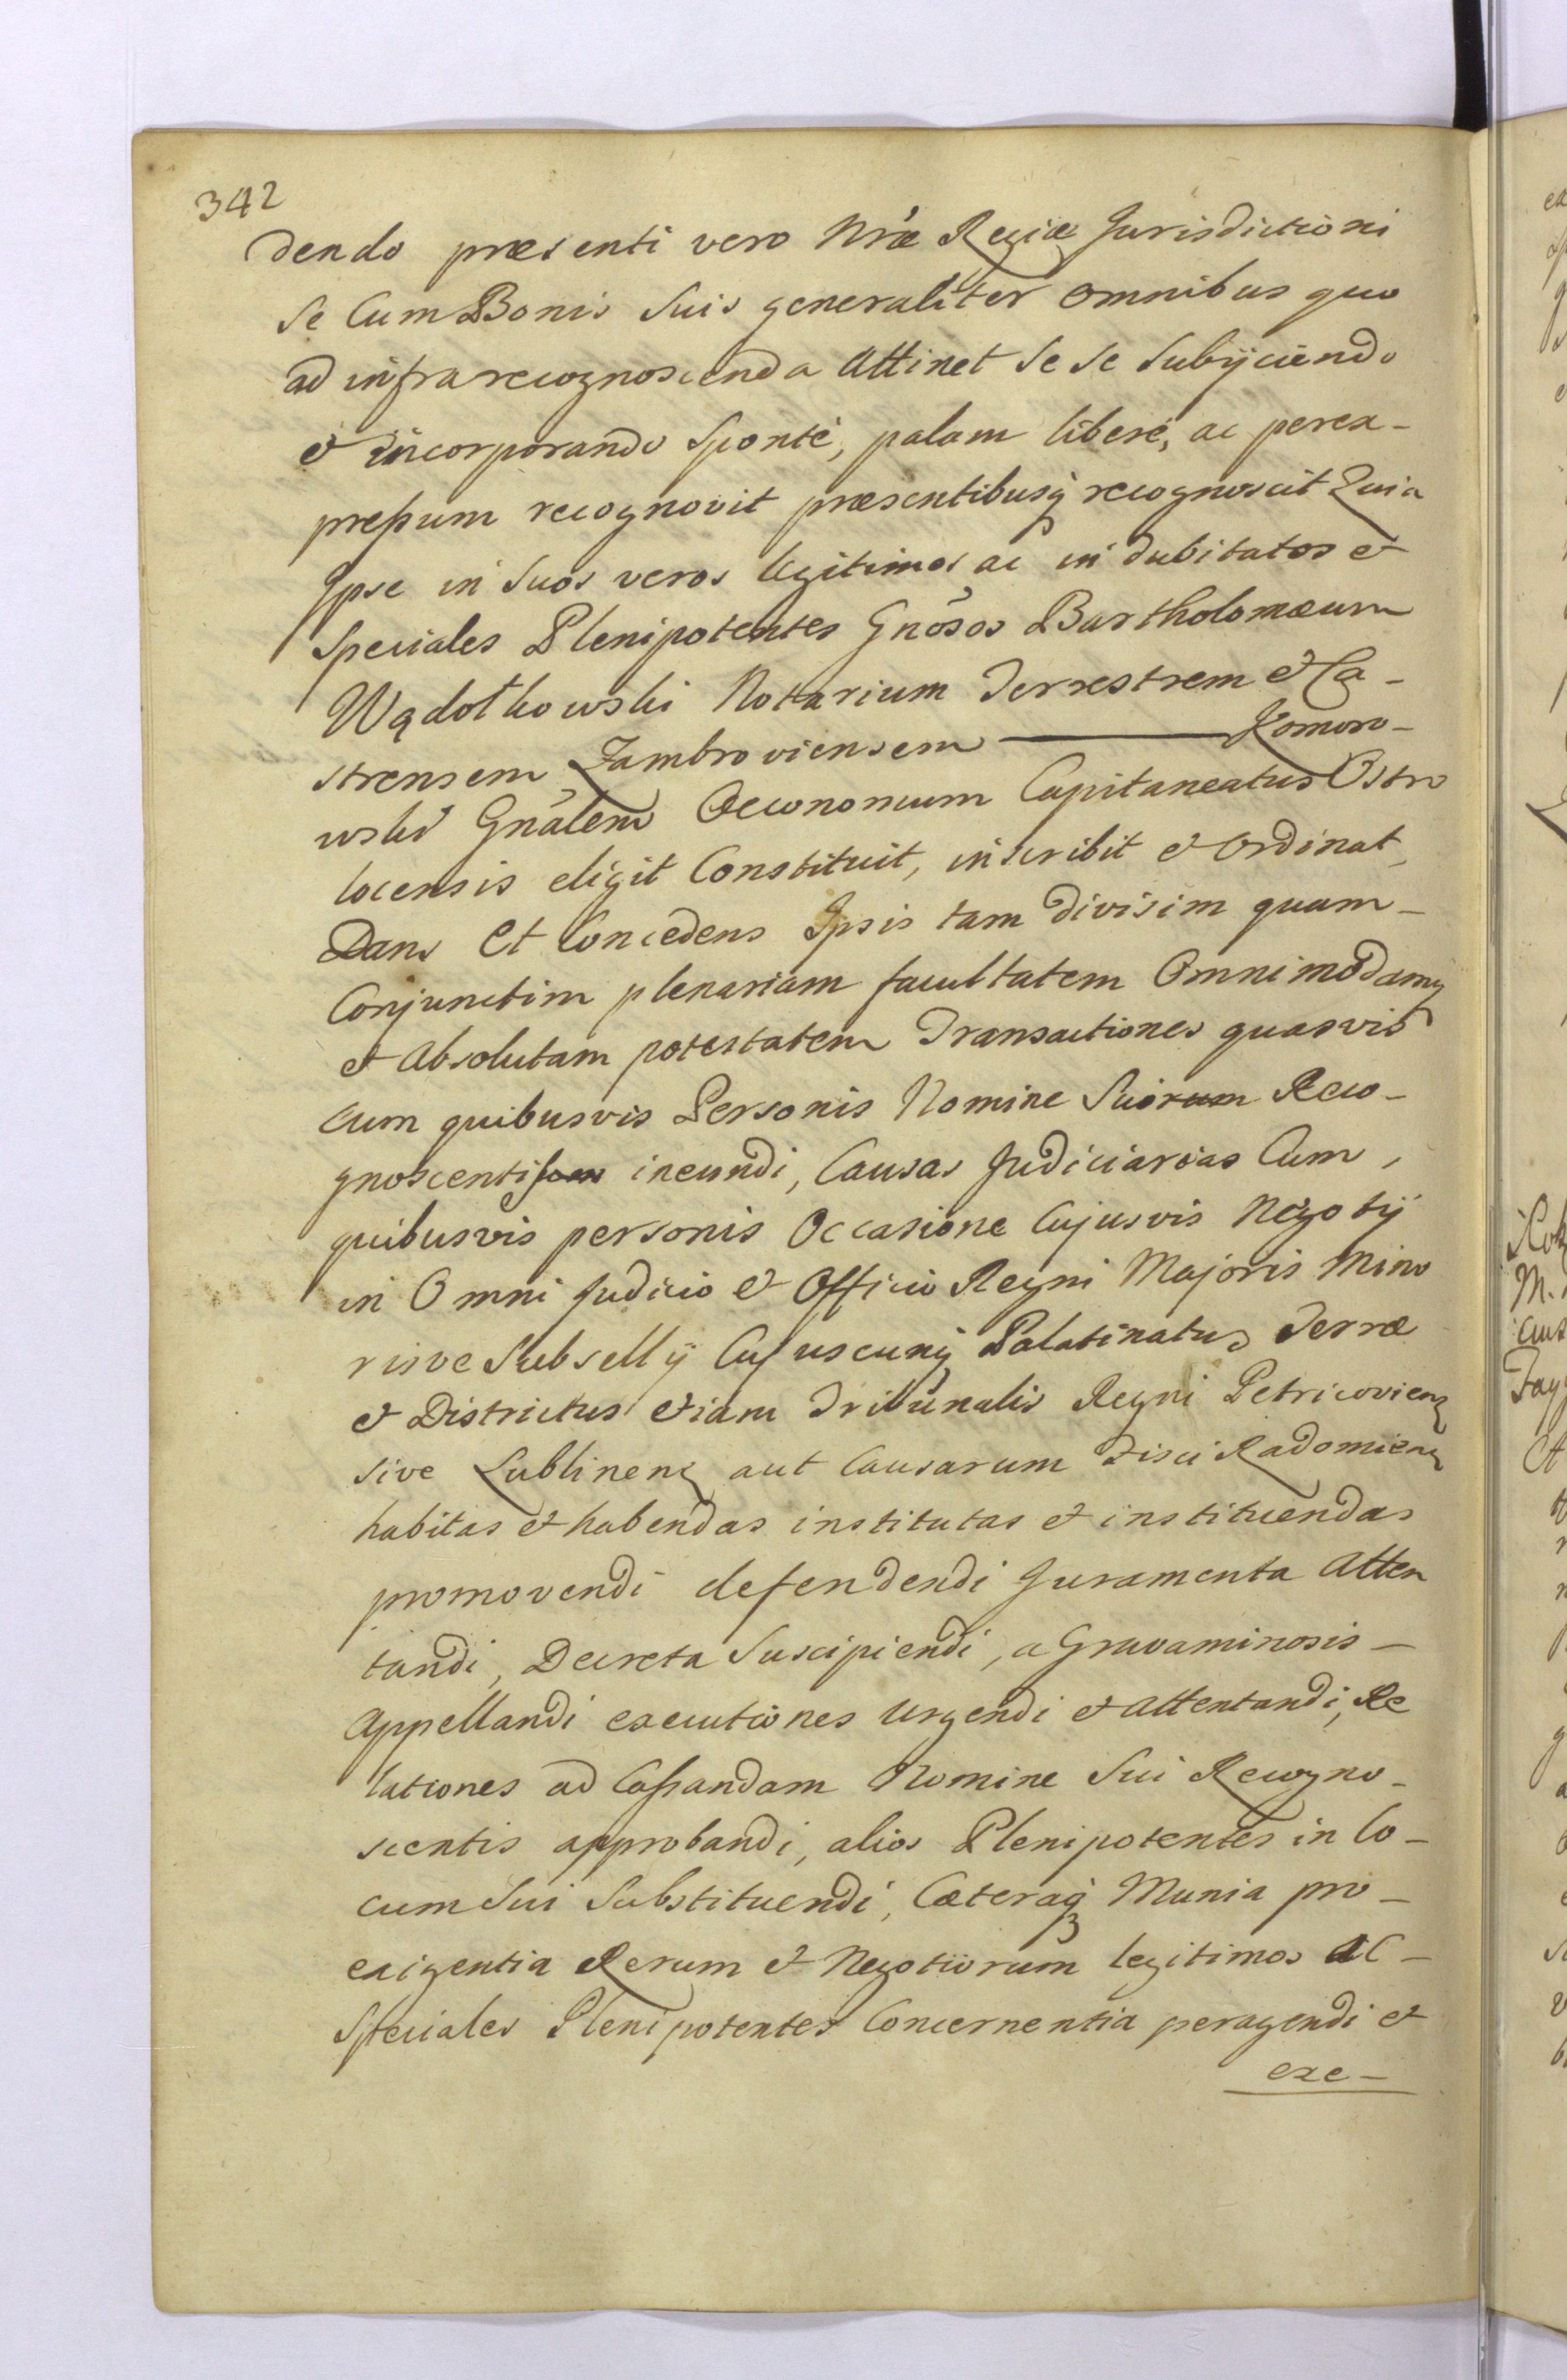 342
dendo præsenti vero Nræ Regiæ Jurisdictioni
se Cum Bonis Suis generaliter omnibus quo
ad infra recognoscenda Attinet Se Se Subijciendo
et incorporando Sponte, palam libere, ac perex-
pressum recognovit præsentibusq recognoscit Quia
Ipse in Suos veros legitimos ac indubitatos et
Speciales Plenipotentes Gnōsos Bartholomæum
Wądołkowski Notarium Terrestrem et Ca-
strensem Zambroviensem ——— Komoro-
wski Gnālem Oeconomum Capitaneatus Ostro
locensis eligit Constituit, inscribit et ordinat,
Dans Et Concedens Ipsis tam divisim quam-
Conjunctim plenariam facultatem Omnimodamq
et Absolutam potestatem Transactiones quasvis
cum quibusvis Personis Nomine Suorum Reco-
gnoscentis ineundi, Causas Judiciarias Cum,
quibusvis personis Occasione Cujusvis Negotij
in Omni Judicio et Officio Regni Majoris Mino
risve Subsellij Cujuscunq Palatinatus Terræ
et Districtus etiam Tribunalis Regni Petricoviens
sive Lublinens aut Causarum Fisci Radomiens
habitas et habendas institutas et instituendas
promovendi defendendi Juramenta Atten
tandi, Decreta Suscipiendi, a Gravaminosis-
Appellandi executiones Urgendi et attentandi, Re
lationes ad Cassandam Nomine Sui Recogno-
scentis approbandi, alios Plenipotentes in lo-
cum Sui Substituendi, Cæteraq Munia pro-
exigentia Rerum et Negotiorum legitimos ac-
Speciales Plenipotentes Concernentia peragendi et
exe-